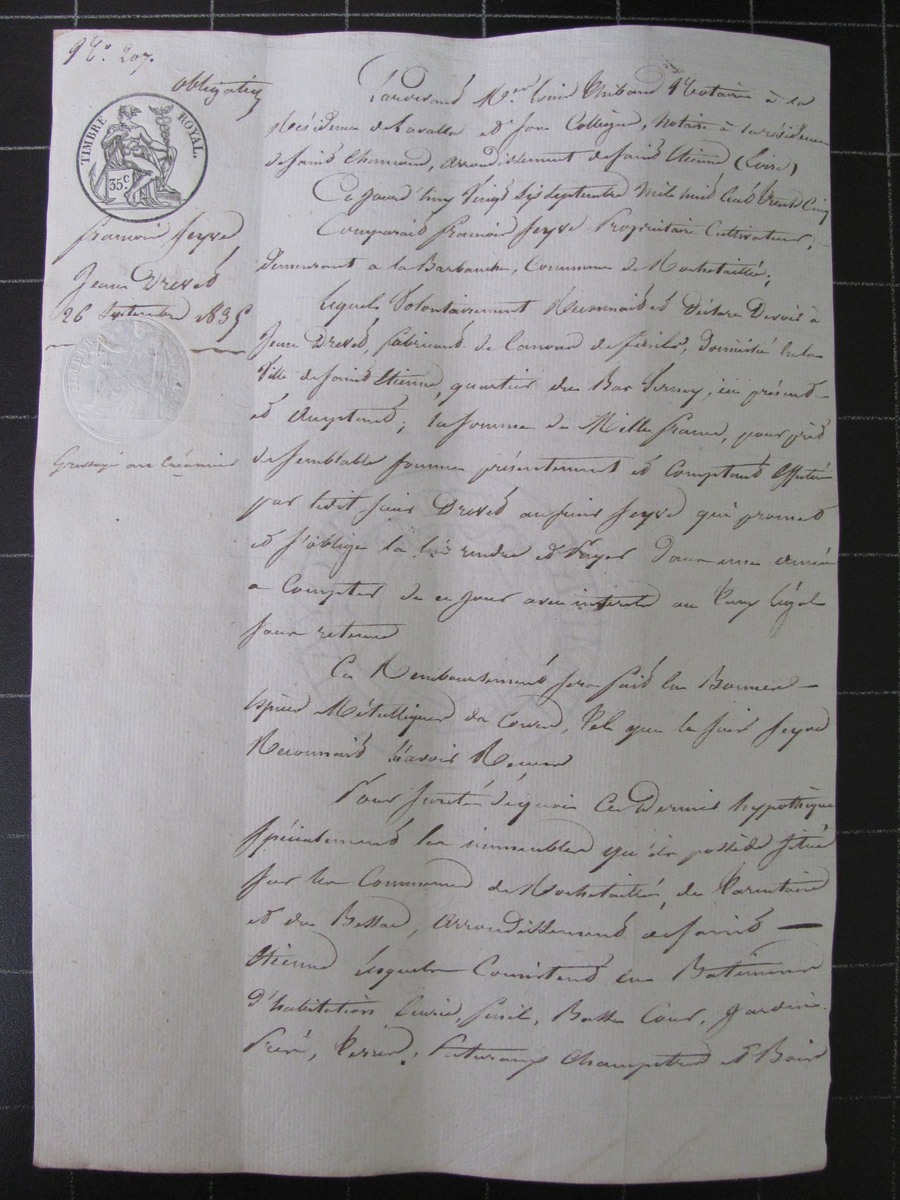 N.o 207.
obligation
TIMBRE ROYAL.
35.c
françois Seyve
Jean Drevet
26 Septembre 1835
Grossoyé au Créancier
Pardevant M.es Louis Thibaud Notaire à la
Résidence de Lavalla et son Collègue, notaire à la résidence
de Saint Chamond, arrondissement de Saint Etienne (Loire)
Ce jourd'huy Vingt Six Septembre Mil huit Cent Trente Cinq
Comparait françois Seyve Propriétaire Cultivateur,
demeurant a la Barbanche, Commune de Rochetaillée,
Lequel Volontairement Reconnait et Déclare Devoir à
Jean Drevet, fabricant de Canons de fusils, Domicilié en la
Ville de Saint Etienne, quartier du Bas Vernay, ici présent
et acceptant, la Somme de Mille francs, pour prêt
de Semblable Somme présentement et Comptant Effectué
par ledit Sieur Drevet au Sieur Seyve qui promet
et S'oblige la lui rendre et Payer Dans une année
a Compter de ce Jour avec intérêts au Taux légal
Sans retenue
Ce Remboursement Sera fait En Bonnes
Espèces Métalliques de Cours, Tel que le Sieur Seyve
Reconnait L'avoir Reçue
Pour Sureté de quoi Ce Dernier hypothèque
Spécialement les immeubles qu'il possède Situés
Sur les Communes de Rochetaillée, de Tarentaise
et du Bessat, arrondissement de Saint
Etienne Lesquels Consistent En Batiments
D'habitation Ecurie, fenil, Basse Cour, Jardin
Prés, Terres, Paturaux Champêtres et Bois